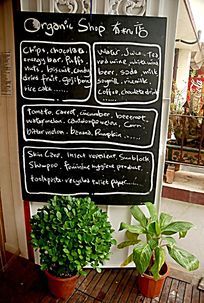 Organic Shop 有机店
Chips, chocolate
energy bar. Puffs.
nuts, biscuit, candy
dried fruit, goji berry
rice cake ......
Water, Juice, Tea
red wine, white wine
beer, soda, milk
Coffee, chocolate drink
Tomato, carrot, cucumber, beetroot
watermelon. Corn.
bittermelon. Pumpkin ......
Skin Care, Insect repellent, Sunblock
Shampoo, feminine hygiene product,
toothpaste, recycled toilet paper ......